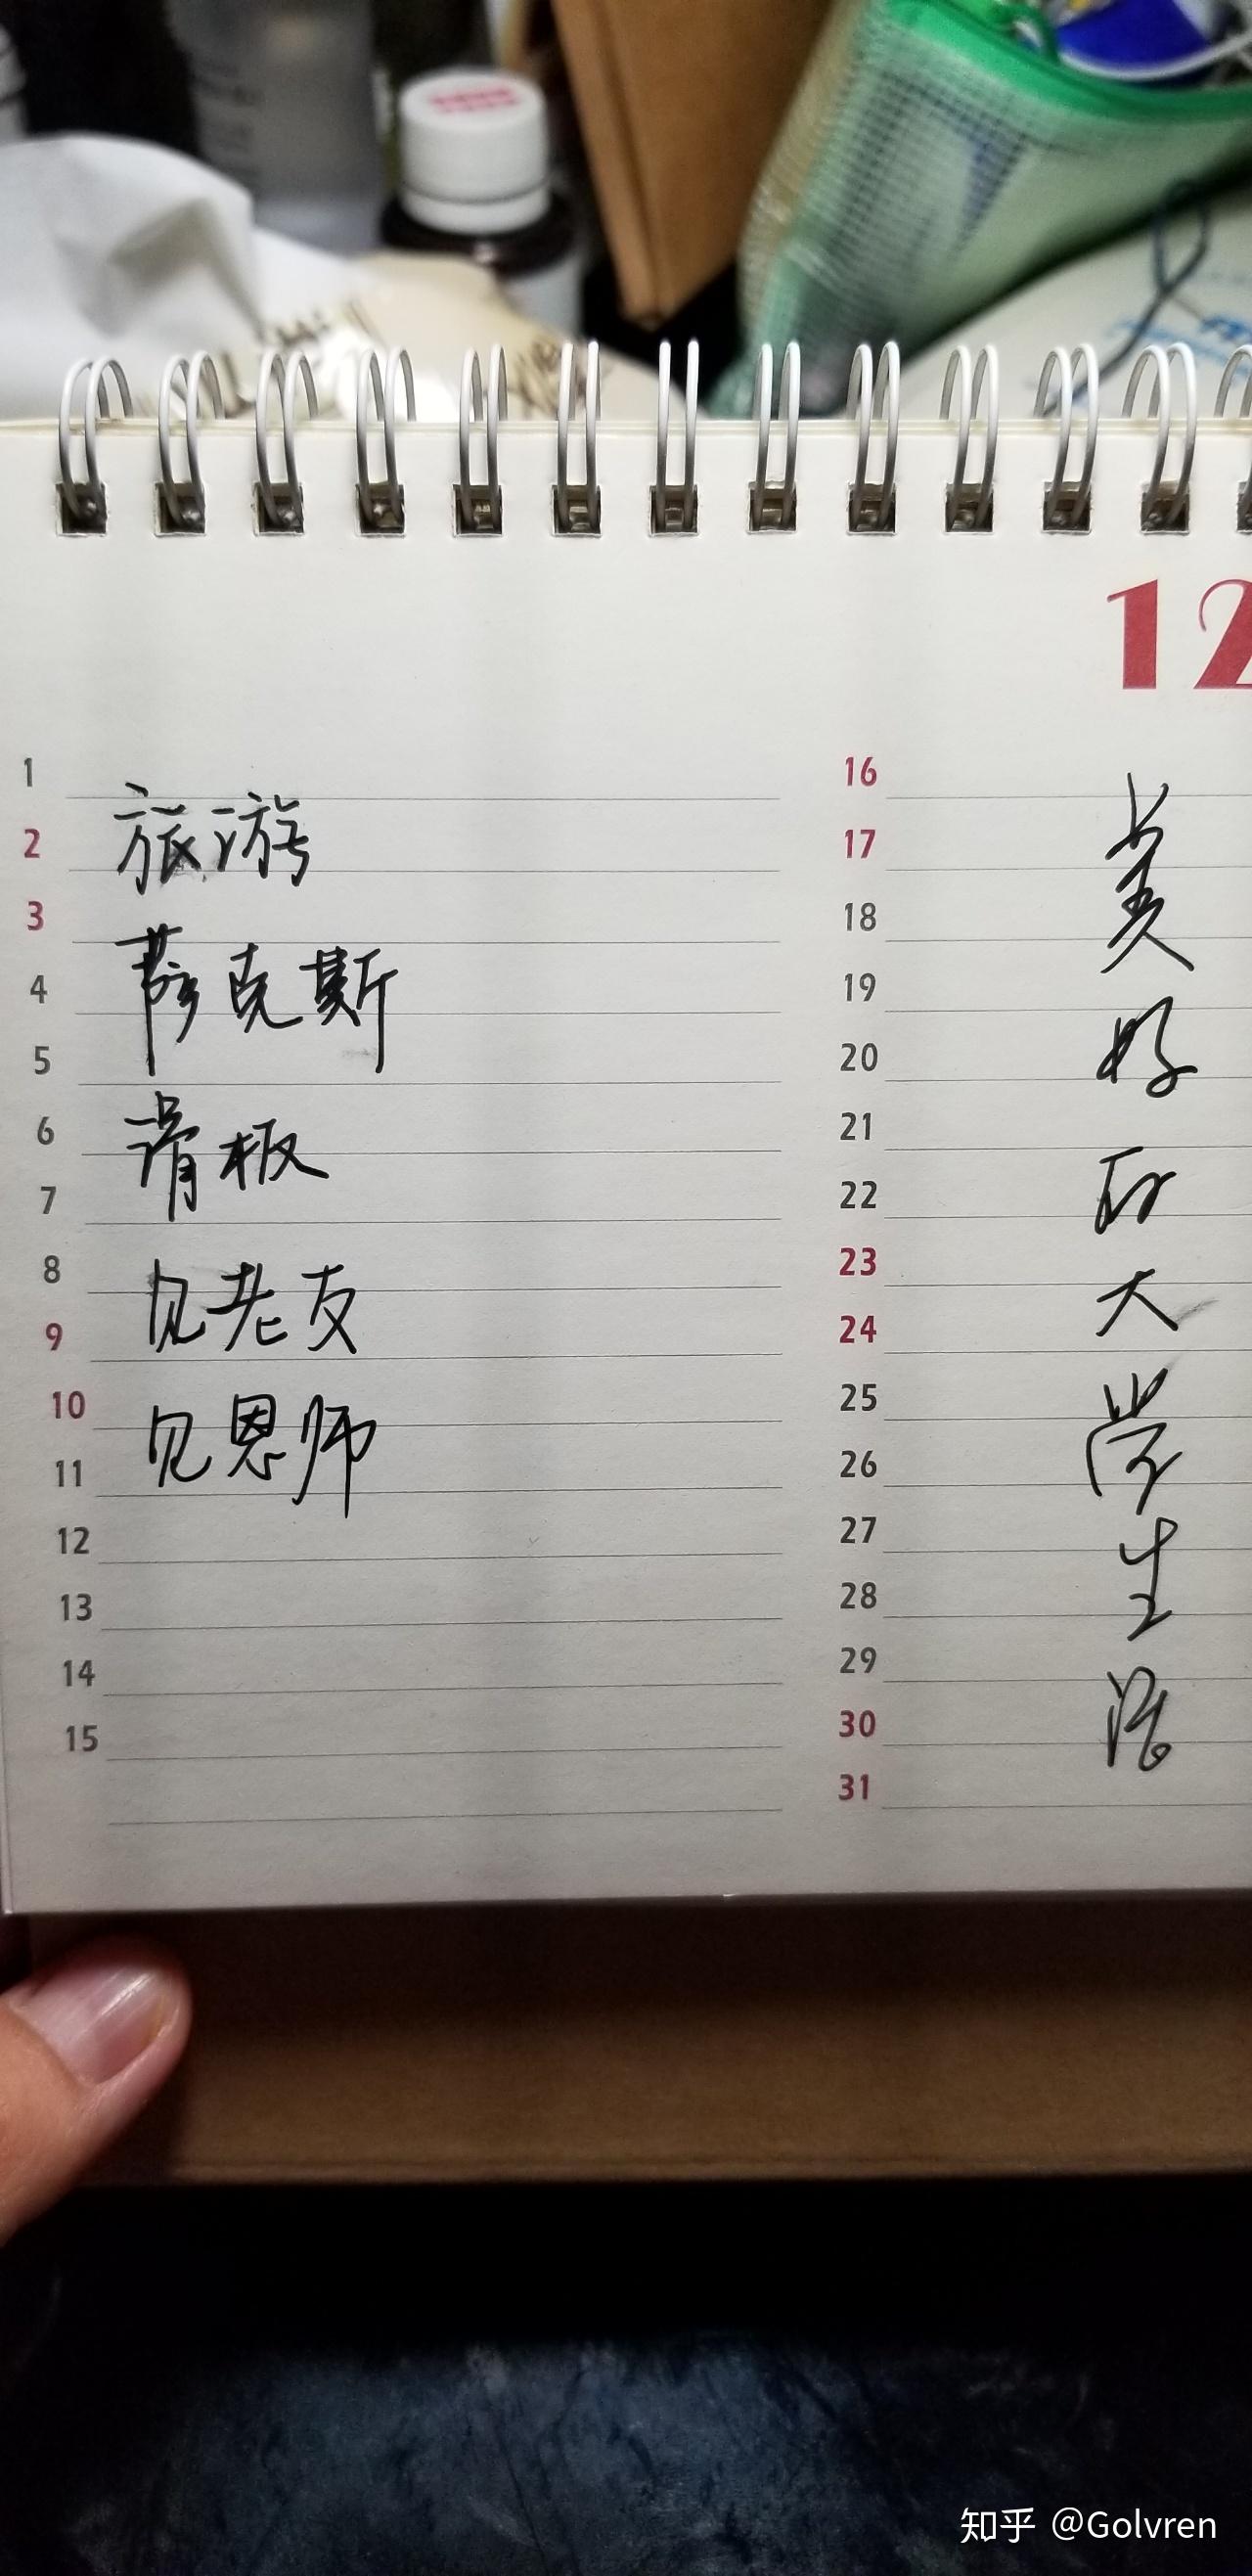 12
1
2
旅游
3
4
萨克斯
5
6
滑板
7
8
9
见老友
10
11
见恩师
12
13
14
15
16
17
18
19
20
21
22
23
24
25
26
27
28
29
30
31
美
好
的
大
学
生
活
知乎 @Golvren